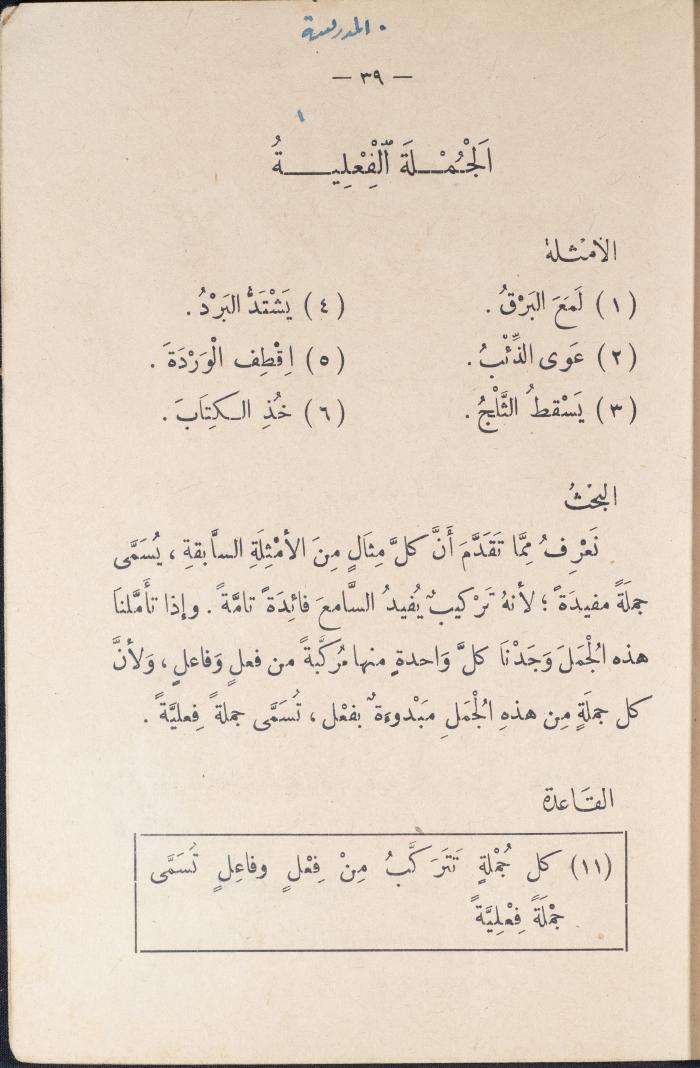 المدرسة
— ٣٩ —
اَلْجُمْلَةَ ٱلْفِعْلِيَةُ
الأمْثلة
(١) لَمَعَ البَرْقُ .
(٢) عَوى الذِّئْبُ .
(٣) يَسْقطُ الثَّلْجُ .
(٤) يَشْتَدُّ البَرْدُ .
(٥) اِقْطِف الْوَرْدَةَ .
(٦) خُذِ الكِتَابَ .
البحْثُ
نَعْرِفُ مِمَّا تَقَدَّمَ أَنَّ كلَّ مِثَالٍ مِنَ الأمْثِلَةِ السَّابقةِ ، يُسَمَّى
جملَةً مفيدَةً ؛ لأنهُ تَرْكيبٌ يُفيدُ السَّامعَ فائِدَةً تامَّةً . وإذا تأَمَّلنَا
هذه الْجُمَلَ وَجَدْنَا كلَّ وَاحدةٍ منها مُرَكَّبةً من فعلٍ وَفاعلٍ ، وَلأنَّ
كل جملَةٍ مِن هذهِ الْجُمَلِ مَبْدوءةٌ بفعْل ، تُسَمَّى جملةً فِعليَّةً .
القَاعدة
(١١) كل جُمْلةٍ تَتَرَكَّبُ مِنْ فِعْلٍ وفاعِلٍ تُسَمَّى
جمْلَةً فِعْلِيَّةً